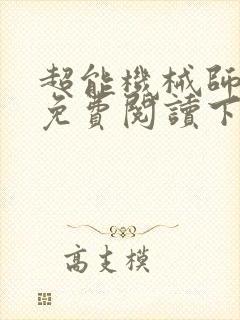 超能機械師
免費閱讀下
高支模